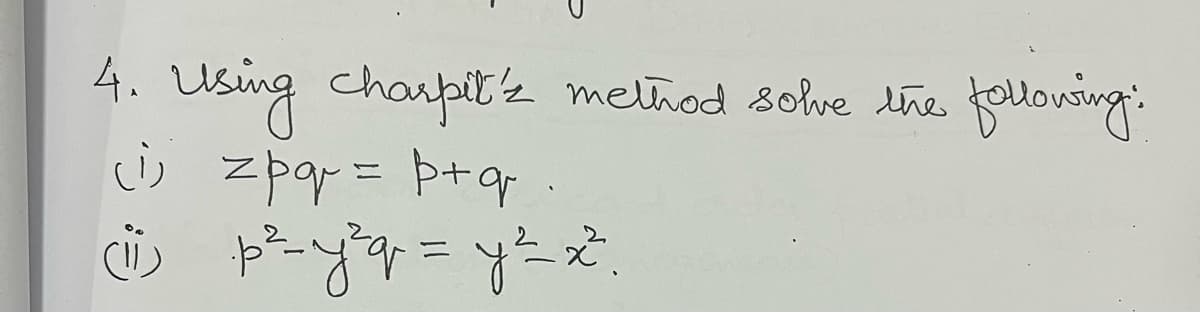 4. Using Charpit's method solve the following:
(i) zpq = p+q.
(ii) p²-y²q = y²-x².